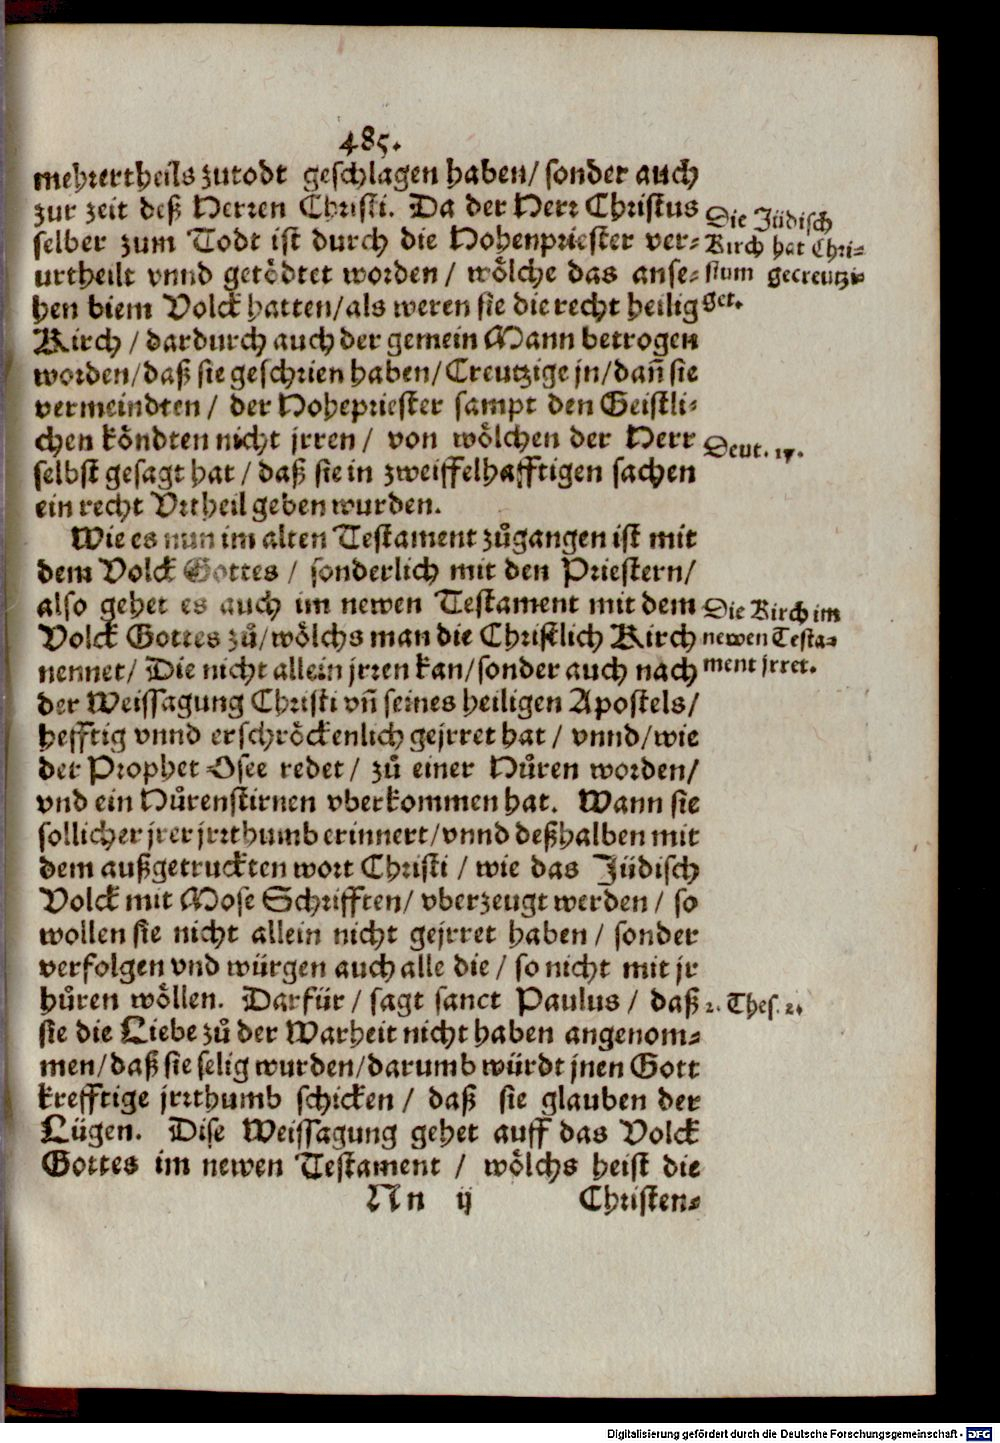 485.
mehrertheils zutodt geschlagen haben/ sonder auch
zur zeit deß Herren Christi. Da der Herr Christus
selber zum Todt ist durch die Hohenpriester ver-
urtheilt vnnd getödtet worden/ wölche das anse-
hen biem Volck hatten/ als weren sie die recht heilig
Kirch/ dardurch auch der gemein Mann betrogen
worden/ daß sie geschrien haben/ Creutzige jn/ dañ sie
vermeindten/ der Hohepriester sampt den Geistli-
chen köndten nicht jrren/ von wölchen der Herr
selbst gesagt hat/ daß sie in zweiffelhafftigen sachen
ein recht Vrtheil geben wurden.
Die Jüdisch
Kirch hat Chri-
stum gecreutzi-
get.
Deut. 17.
Wie es nun im alten Testament zůgangen ist mit
dem Volck Gottes/ sonderlich mit den Priestern/
also gehet es auch im newen Testament mit dem
Volck Gottes zů/ wölchs man die Christlich Kirch
nennet/ Die nicht allein jrren kan/ sonder auch nach
der Weissagung Christi vñ seines heiligen Apostels/
hefftig vnnd erschröckenlich gejrret hat/ vnnd/ wie
der Prophet Osee redet/ zů einer Hůren worden/
vnd ein Hůrenstirnen vberkommen hat. Wann sie
sollicher jrer jrrthumb erinnert/ vnnd deßhalben mit
dem außgetruckten wort Christi/ wie das Jüdisch
Volck mit Mose Schrifften/ vberzeugt werden/ so
wollen sie nicht allein nicht gejrret haben/ sonder
verfolgen vnd würgen auch alle die/ so nicht mit jr
hůren wöllen. Darfür/ sagt sanct Paulus/ daß
sie die Liebe zů der Warheit nicht haben angenom-
men/ daß sie selig wurden/ darumb würdt jnen Gott
krefftige jrrthumb schicken/ daß sie glauben der
Lügen. Dise Weissagung gehet auff das Volck
Gottes im newen Testament/ wölchs heist die
Die Kirch im
newen Testa-
ment jrret.
2. Thes. 2.
Nn ij Christen-
Digitalisierung gefördert durch die Deutsche Forschungsgemeinschaft - DFG